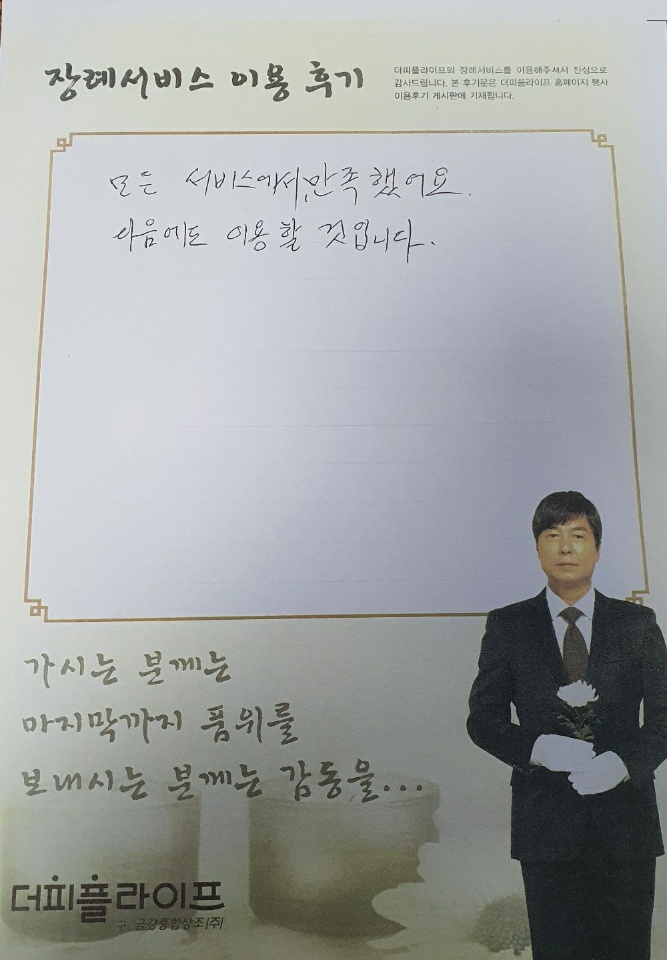 장례서비스 이용 후기
더피플라이프의 장례서비스를 이용해주셔서 진심으로
감사드립니다. 본 후기문은 더피플라이프 홈페이지 행사
이용후기 게시판에 기재됩니다.
모든 서비스에서 만족했어요.
다음에도 이용할 것입니다.
가시는 분께는
마지막까지 품위를
보내시는 분께는 감동을...
더피플라이프
구. 금강종합상조(주)